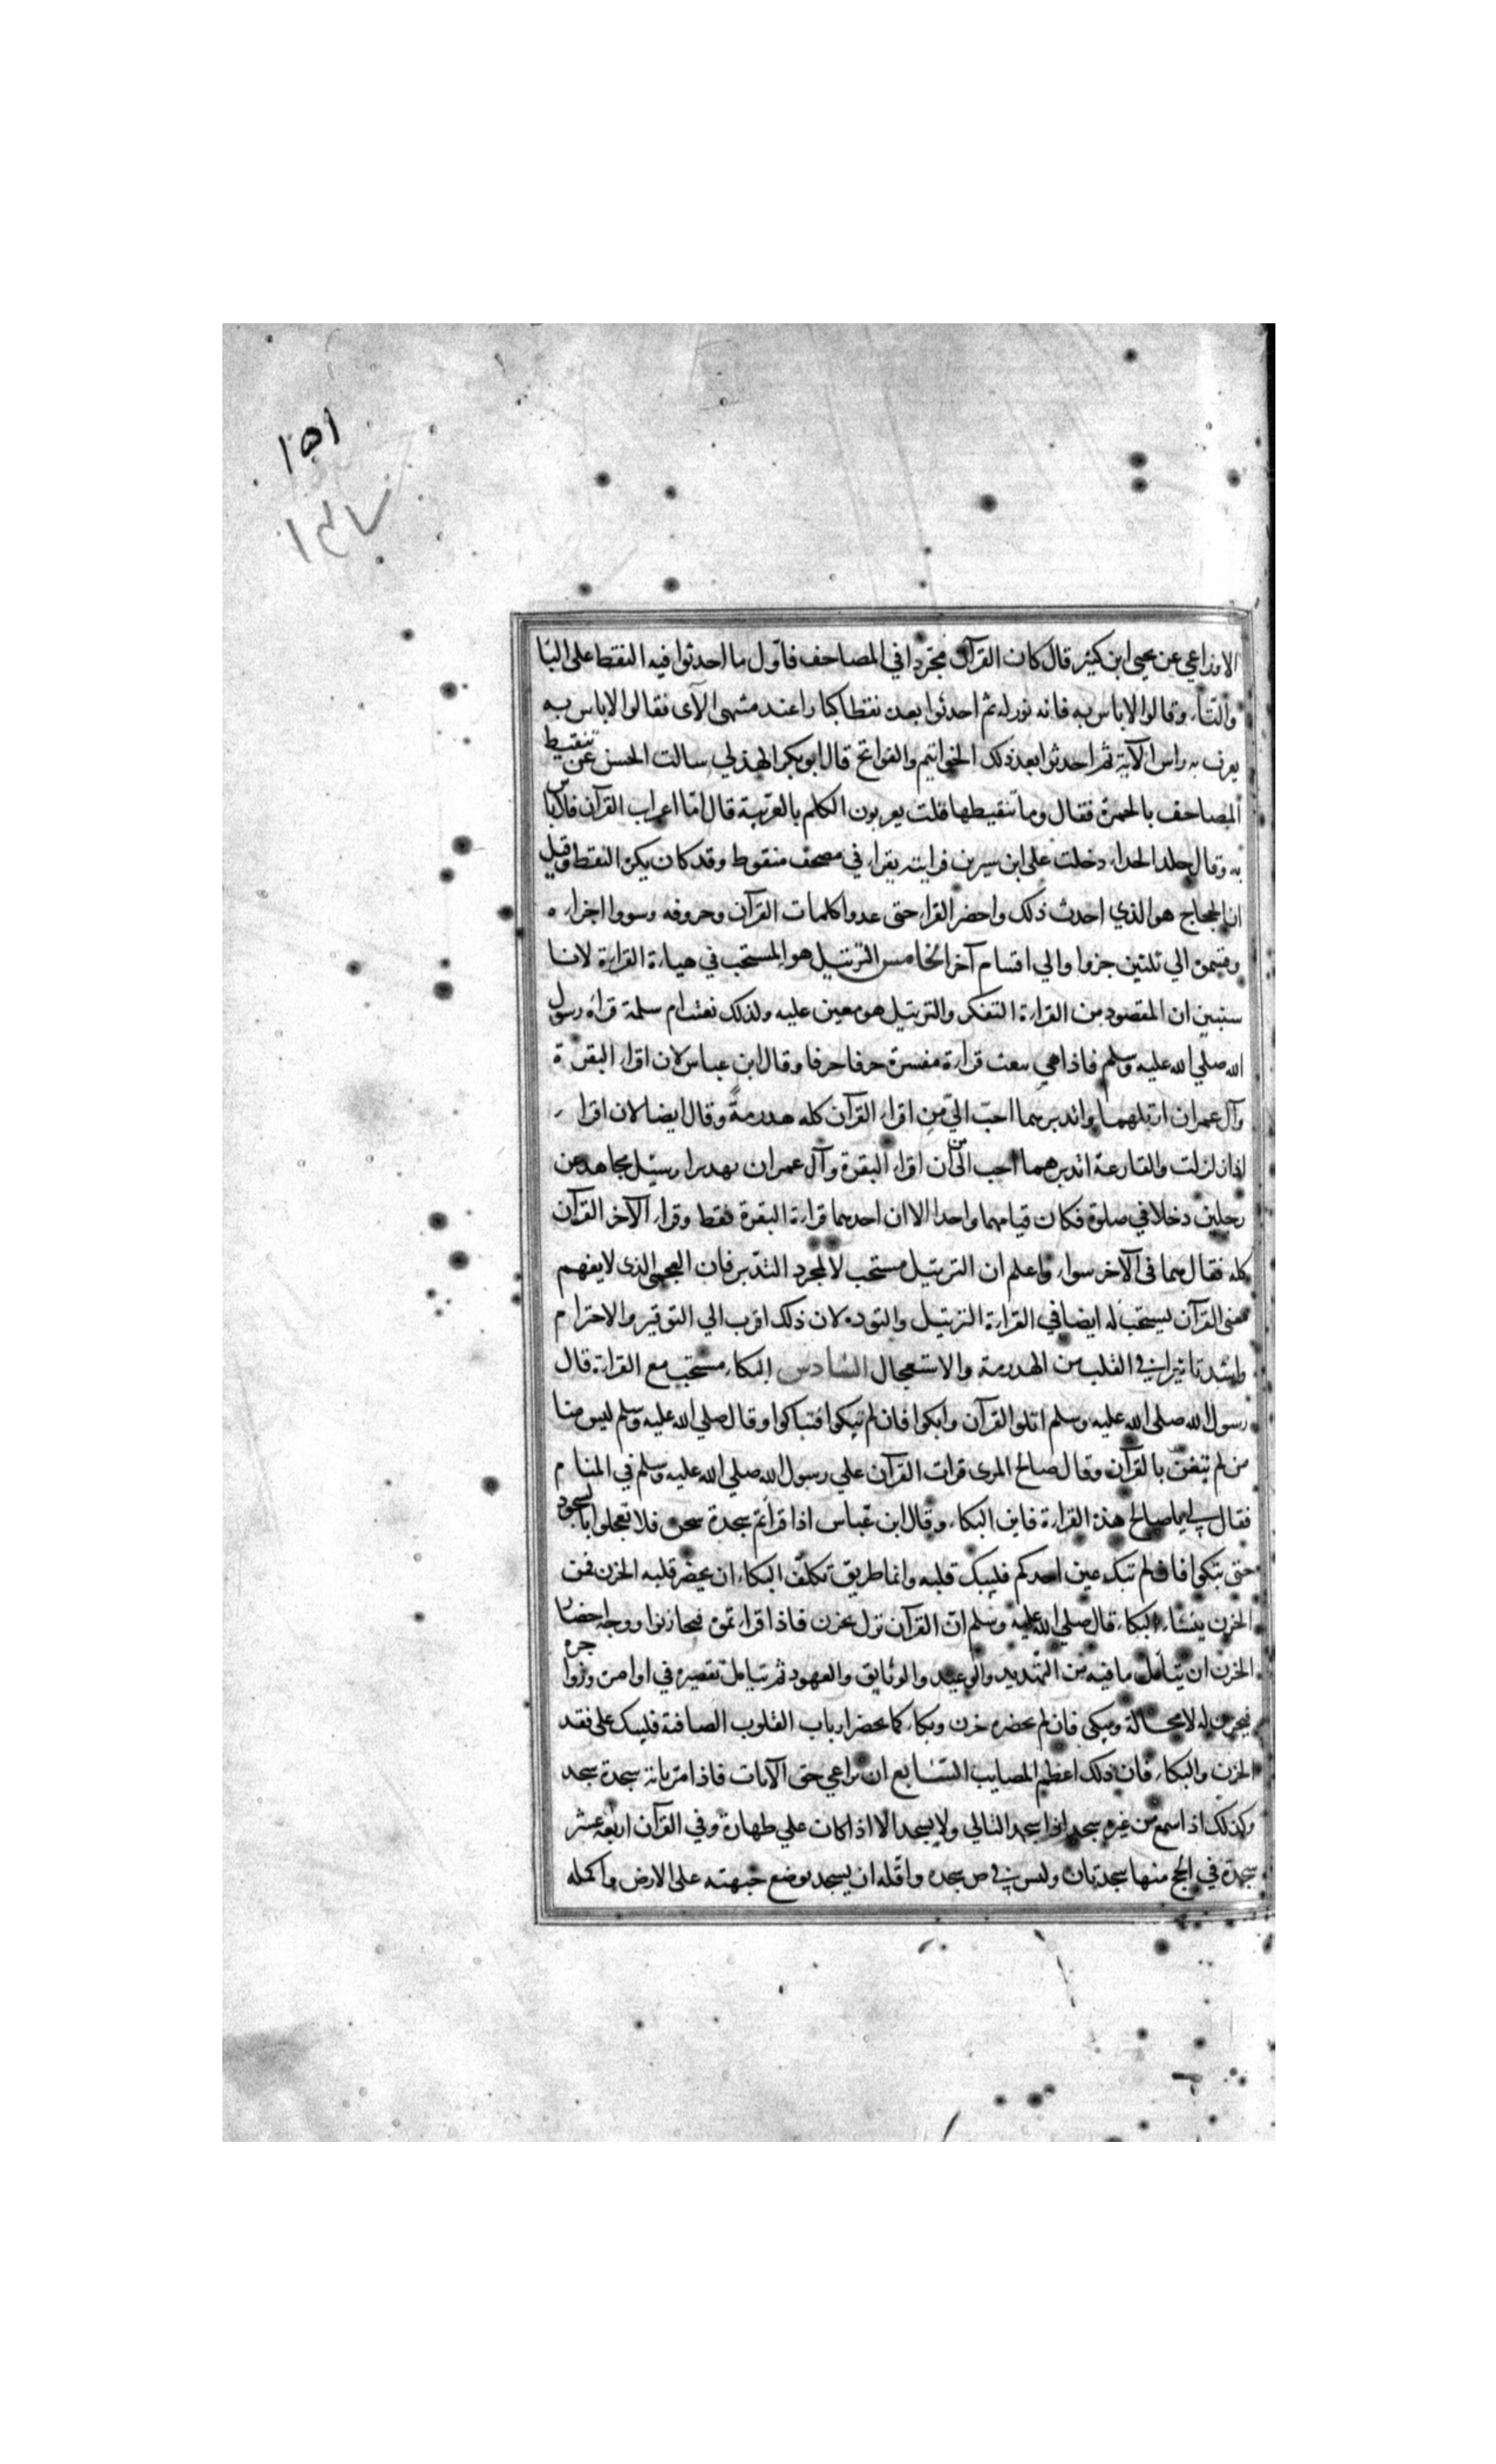 ١٥١
١٤٧
الاوزاعي عن يحيى ابن كثير قال كان القرآن مجردا في المصاحف فاول ما احدثوا فيه النقط على البا
والتاء وقالوا لاباس به فانه نور له ثم احدثوا بعده نقطا كبارا عند منتهى الآى فقالوا لاباس به
يعرف به راس الآية ثم احدثوا بعد ذلك الخواتيم والفواتح قال ابو بكر الهذلي سالت الحسن عن تنقيط
المصاحف بالحمرة فقال وما تنقيطها قلت يعربون الكلم بالعربية قال اما اعراب القرآن فلاباس
به وقال خلد الحداء دخلت على ابن سيرين فرايته يقراء في مصحف منقوط وقد كان يكره النقط وقيل
ان الحجاج هو الذي احدث ذلك واحضر القراء حتى عدوا كلمات القرآن وحروفه وسووا اجزاءه
وقسموه الي ثلثين جزوا والي اقسام آخر الخامس الترتيل هو المستحب في هياءة القراءة لانا
سنبين ان المقصود من القراءة التفكر والترتيل هو معين عليه ولذلك نعتت ام سلمة قراة رسول
الله صلي الله عليه وسلم فاذا هي نعتت قراءة مفسرة حرفا حرفا وقال ابن عباس لان اقراء البقرة
وآل عمران ارتلهما واتدبرهما احب الي من اقراء القرآن كله هدرمة وقال ايضا لان اقراء
اذا زلزلت والقارعة اتدبرهما احب الى من ان اقراء البقرة وآل عمران تهديرا وسئل مجاهد عن
رجلين دخلا في صلوة فكان قيامهما واحدا الا ان احدهما قراءة البقرة فقط وقراء الآخر القرآن
كله فقال هما فى الآخر سواء واعلم ان الترتيل مستحب لا لمجرد التدبر فان العجمى الذى لا يفهم
معنى القرآن يستحب له ايضا في القراءة الترتيل والتوده لان ذلك اقرب الي التوقير والاحترام
واشد تاثيرا في القلب من الهدرمة والاستعجال السادس البكاء مستحب مع القراءة قال
رسول الله صلى الله عليه وسلم اتلو القرآن وابكوا فان لم تبكوا فتباكوا وقال صلي الله عليه وسلم ليس منا
من لم يتغن بالقرآن وقال صالح المرى قرات القرآن علي رسول الله صلي الله عليه وسلم في المنام
فقال لي يا صالح هذه القراءة فاين البكاء وقال ابن عباس اذا قراتم سجدة سبحن فلا تعجلوا بالسجود
حتى تبكوا فان لم تبك عين احدكم فليبك قلبه وانما طريق تكلف البكاء ان يحضر قلبه الحزن فمن
الحزن ينشاء البكاء قال صلي الله عليه وسلم ان القرآن نزل بحزن فاذا اقراءتموه فتحازنوا ووجه احضار
الحزن ان يتامل ما فيه من التهديد والوعيد والوثايق والعهود ثم يتامل تقصيره في اوامره وزواجره
فيحزن له لا محالة ويبكى فان لم يحضره حزن وبكاء كما يحضر ارباب القلوب الصافية فليبك على فقد
الحزن والبكاء فان ذلك اعظم المصايب السابع ان يراعي حق الآيات فاذا مر باية سجدة سجد
وكذلك اذا سمع من غيره سجد اذا سجد التالي ولا يسجد الا اذا كان علي طهارة وفي القرآن اربعة عشر
سجدة في الحج منها سجدتان وليس في ص سجده واقله ان يسجد بوضع جبهته على الارض واكمله